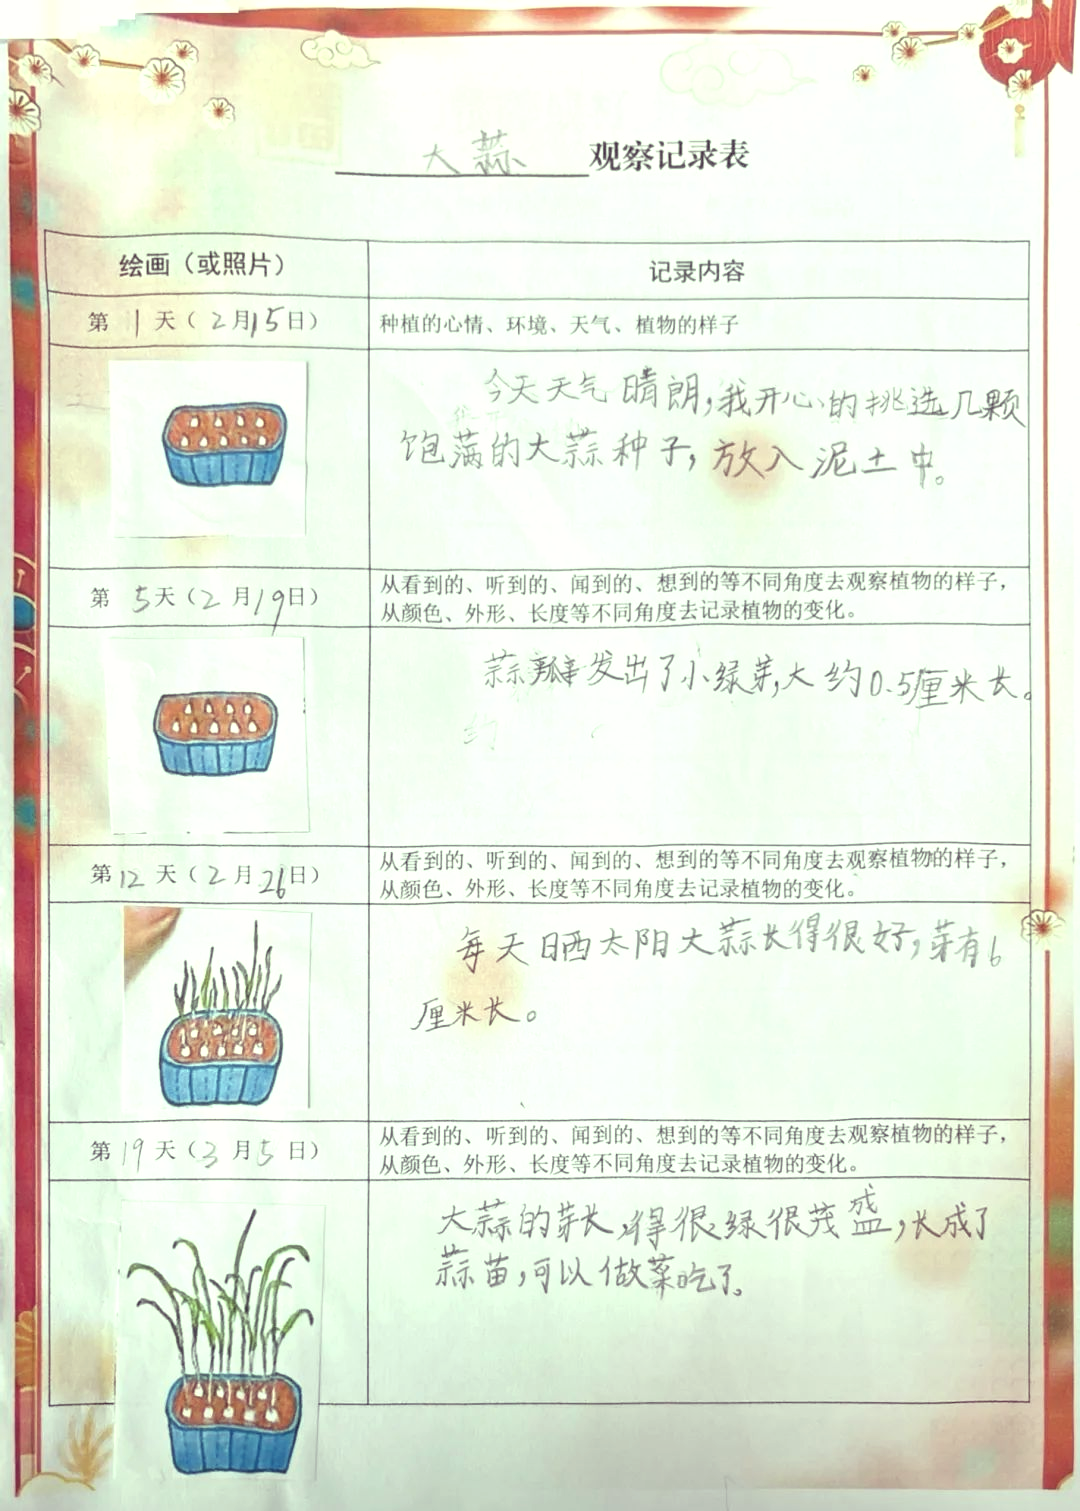 大蒜 观察记录表
绘画（或照片）
记录内容
第 1 天（2月15日）
种植的心情、环境、天气、植物的样子
今天天气晴朗，我开心的挑选几颗
饱满的大蒜种子，放入泥土中。
第 5天（2月19日）
从看到的、听到的、闻到的、想到的等不同角度去观察植物的样子，
从颜色、外形、长度等不同角度去记录植物的变化。
蒜瓣发出了小绿芽，大约0.5厘米长。
第12天（2月26日）
从看到的、听到的、闻到的、想到的等不同角度去观察植物的样子，
从颜色、外形、长度等不同角度去记录植物的变化。
每天晒太阳大蒜长得很好，芽有6
厘米长。
第19天（3月5日）
从看到的、听到的、闻到的、想到的等不同角度去观察植物的样子，
从颜色、外形、长度等不同角度去记录植物的变化。
大蒜的芽长得很绿很茂盛，长成了
蒜苗，可以做菜吃了。